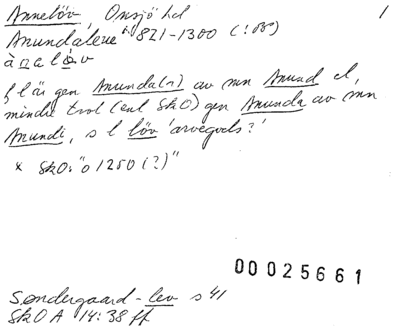 Annelöv, Onsjö hd 1
Anundaleue * 821-1300 (:DD)
analäv
f l är gen Anunda(r) av mn Anund el,
mindre trol (enl SkO) gen Anunda av mn
Anundi, s l löv 'arvegods?'
* SkO: "o 1250 (?)"
00025661
Søndergaard - lev s 41
SkO A 14:38 ff